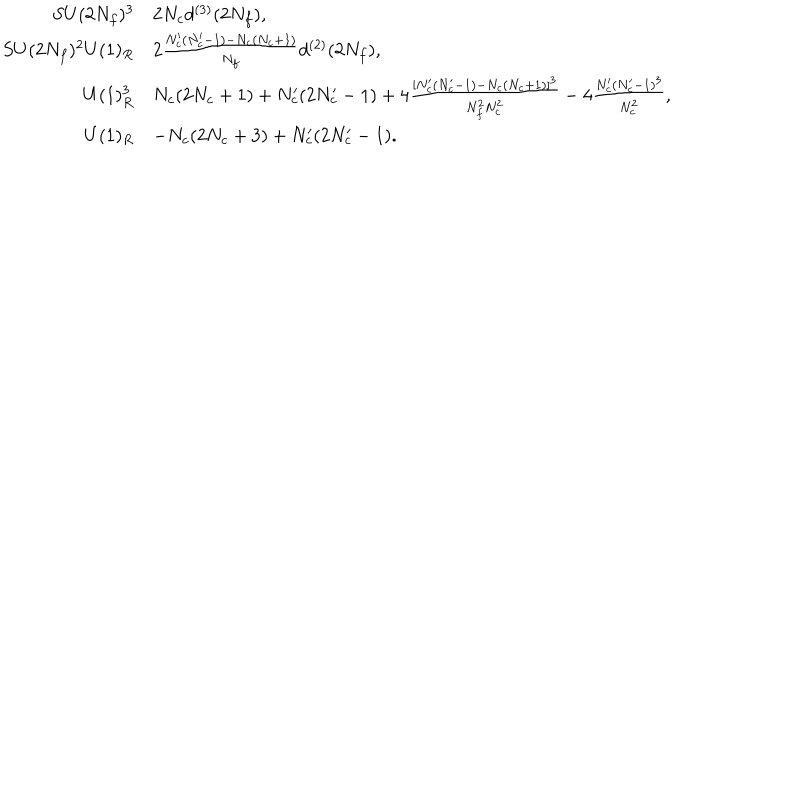 $SU(2N_f)^3 \quad 2N_c d^{(3)}(2N_f),$
$SU(2N_f)^2 U(1)_R \quad 2\frac{N_c'(N_c'-1)-N_c(N_c+1)}{N_f} d^{(2)}(2N_f),$
$U(1)_R^3 \quad N_c(2N_c+1)+N_c'(2N_c'-1)+4\frac{[N_c'(N_c'-1)-N_c(N_c+1)]^3}{N_f^2 N_c^2}-4\frac{N_c'(N_c'-1)^3}{N_c^2},$
$U(1)_R \quad -N_c(2N_c+3)+N_c'(2N_c'-1).$